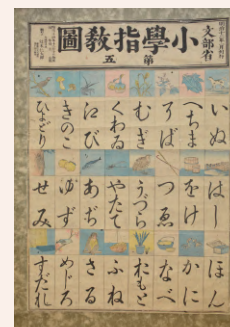 文部省
小學指教圖
第五
いぬ
へちま
そば
むぎ
くわゐ
江び
きのこ
ひよどり
はし
をけ
つゑ
うづら
やたて
あぢ
ゆず
せみ
ほん
かに
なべ
たもと
ふね
さる
めじろ
すだれ